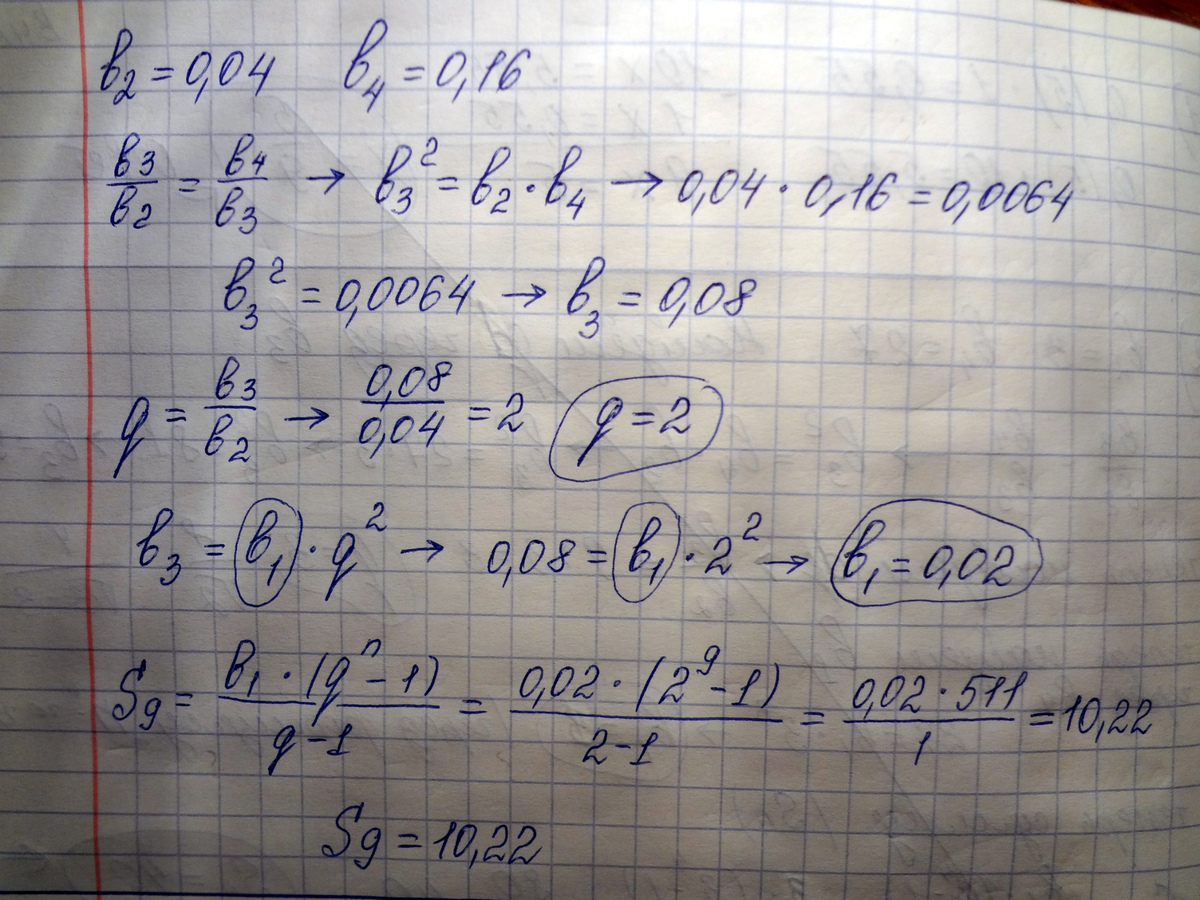 b₂ = 0,04   b₄ = 0,16
b₃/b₂ = b₄/b₃ → b₃² = b₂ · b₄ → 0,04 · 0,16 = 0,0064
b₃² = 0,0064 → b₃ = 0,08
q = b₃/b₂ → 0,08/0,04 = 2   q = 2
b₃ = b₁ · q² → 0,08 = b₁ · 2² → b₁ = 0,02
S₉ = b₁ · (qⁿ - 1)/q - 1 = 0,02 · (2⁹ - 1)/2 - 1 = 0,02 · 511/1 = 10,22
S₉ = 10,22